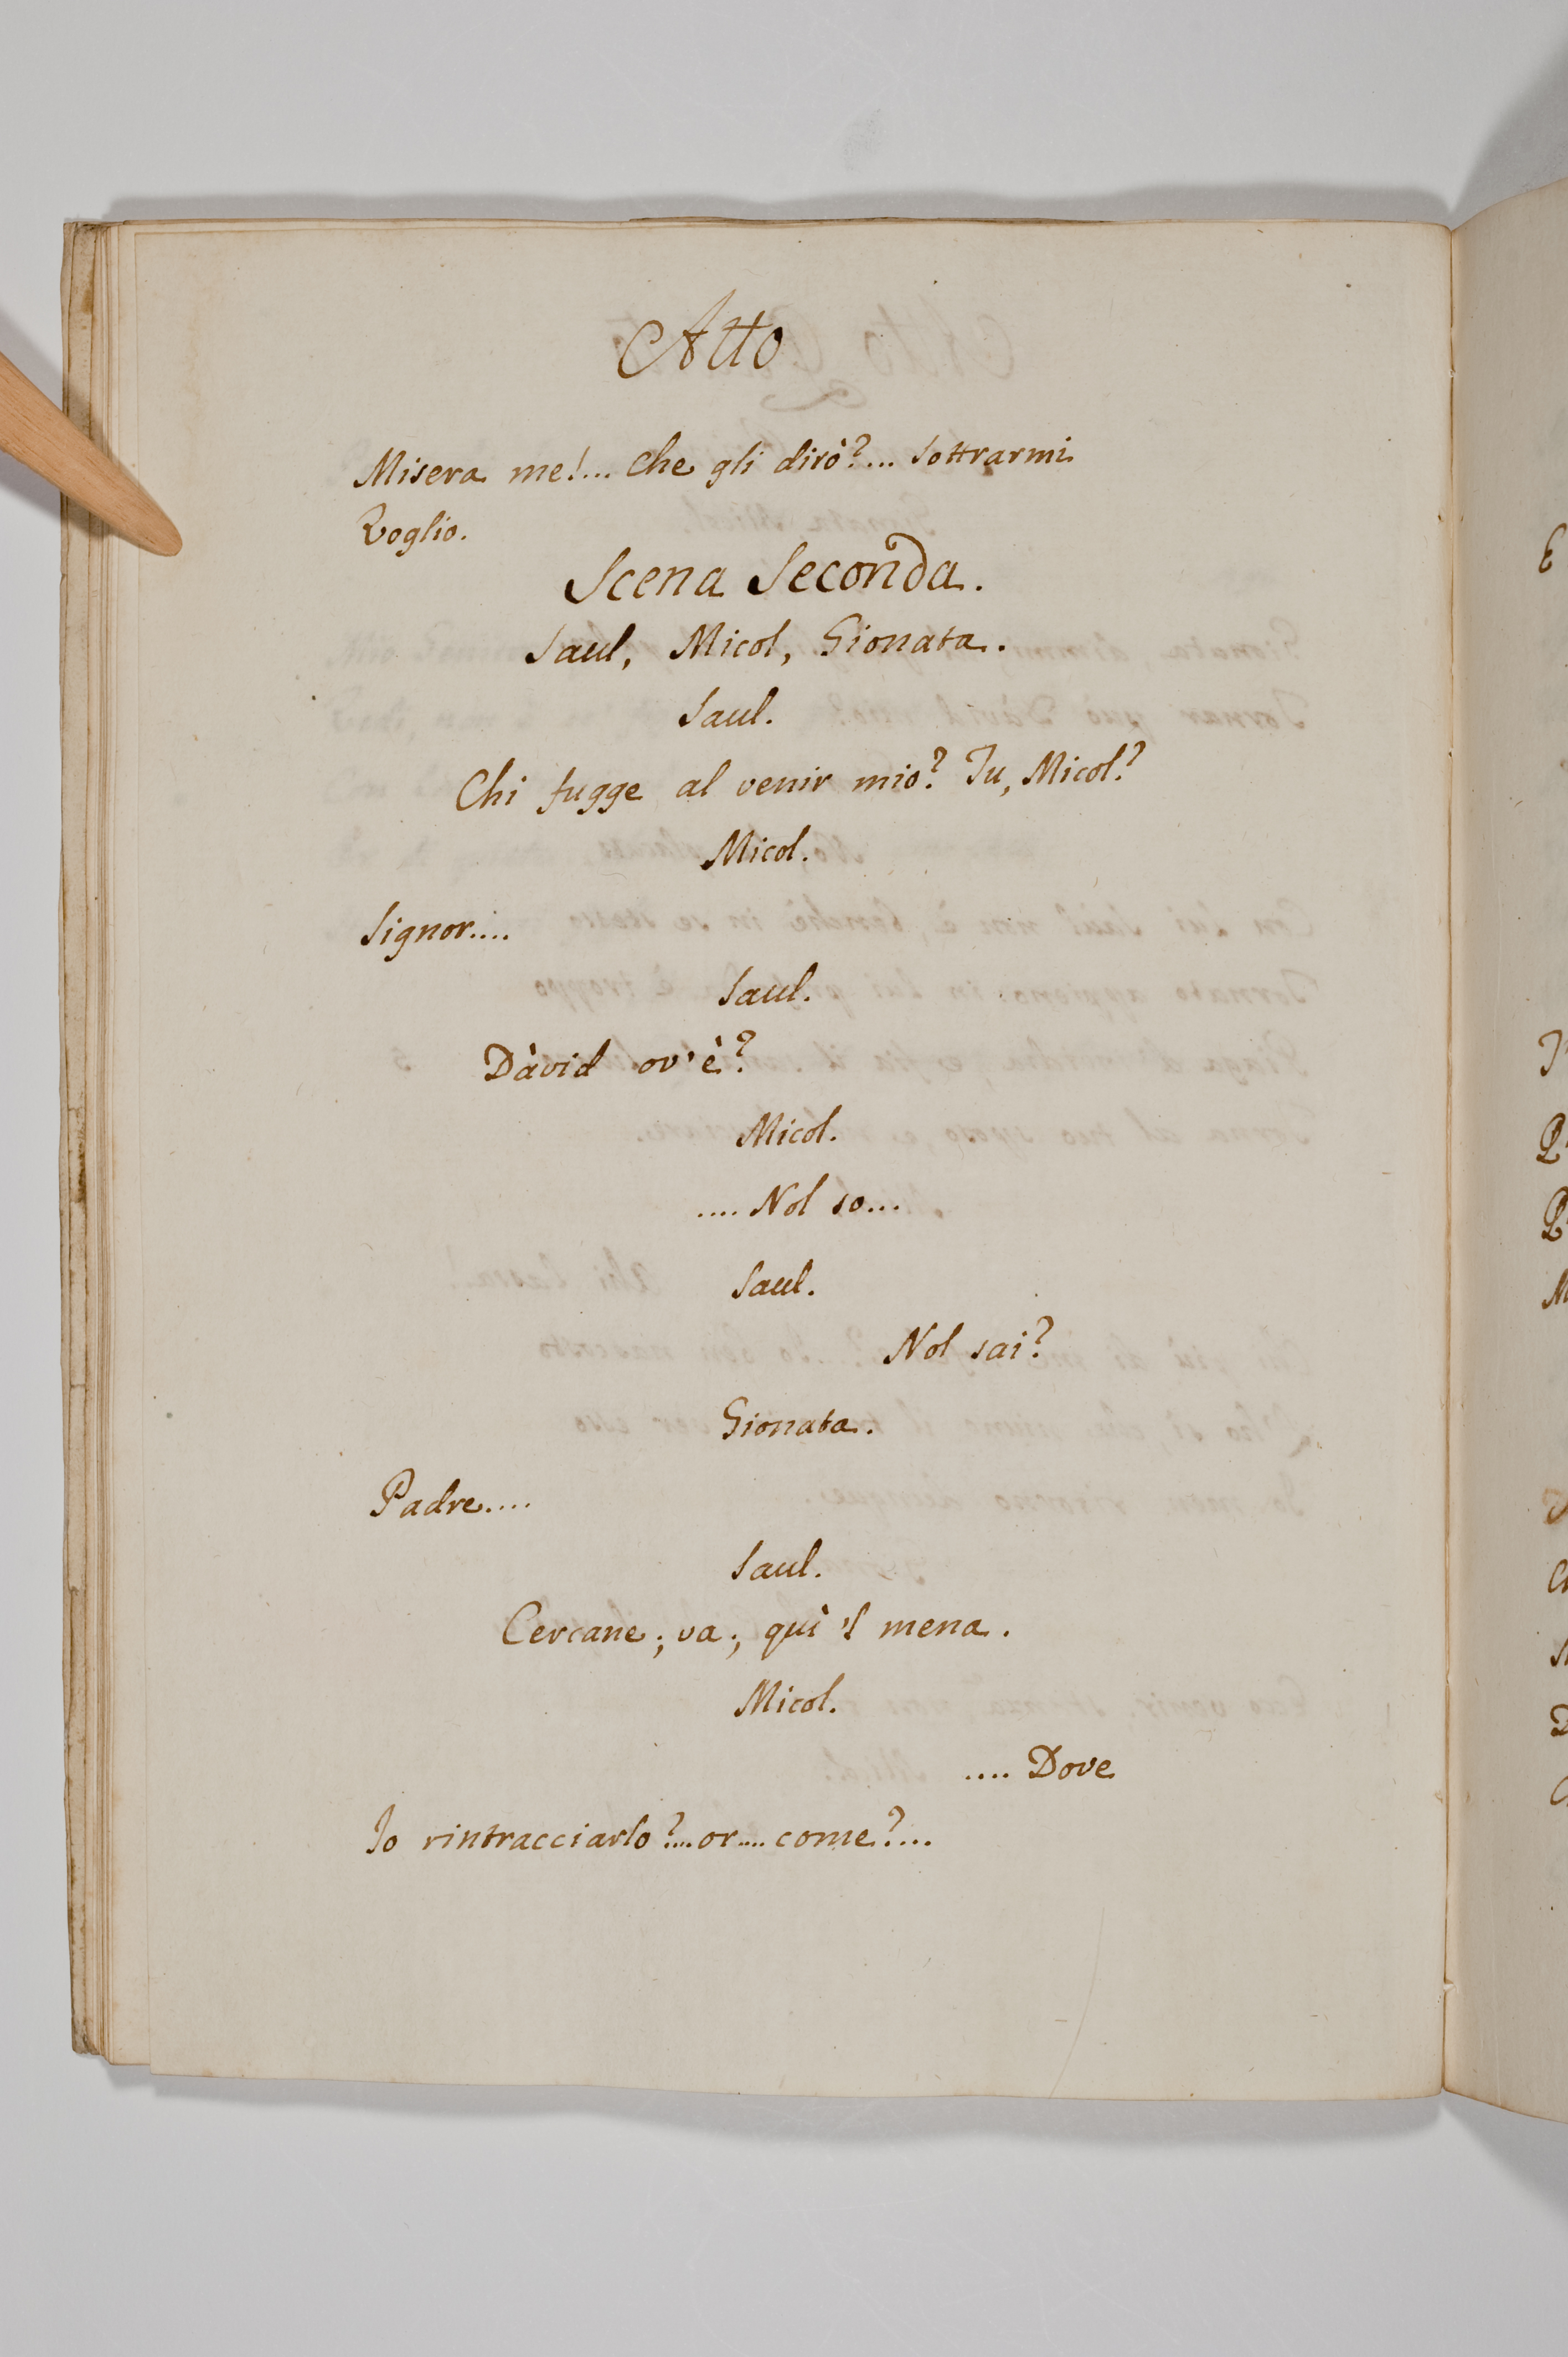 Atto
Misera me!... che gli dirò?... Sottrarmi
Voglio.
Scena Seconda.
Saul, Micol, Gionata.
Saul.
Chi fugge al venir mio? Tu, Micol?
Micol.
Signor....
Saul.
Dàvid ov'è?
Micol.
.... Nol so...
Saul.
Nol sai?
Gionata.
Padre....
Saul.
Cercane; va; quì 'l mena.
Micol.
.... Dove
Io rintracciarlo?.... or.... come?....